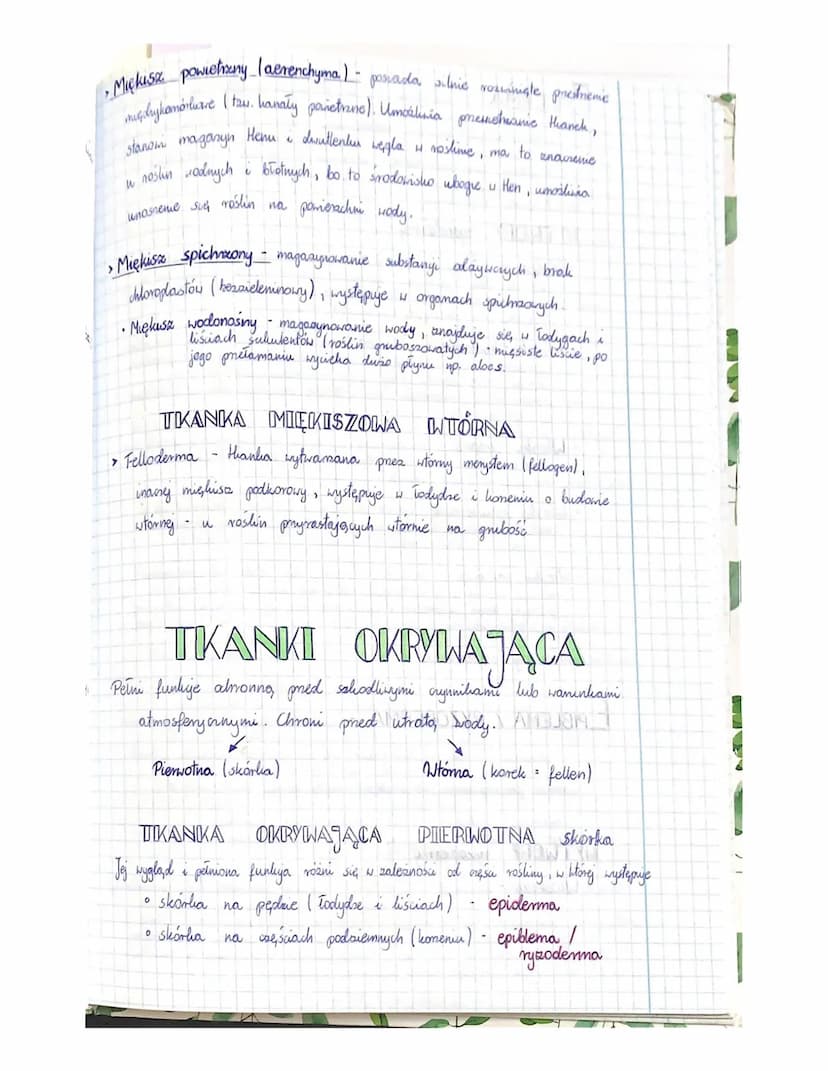 > Miękisz powietrzny (aerenchyma) - posiada silnie rozwinięte przestrzenie
międzykomórkowe (tzw. kanały powietrzne). Umożliwia przewietrzanie tkanek,
stanowi magazyn tlenu i dwutlenku węgla w roślinie, ma to znaczenie
u roślin wodnych i błotnych, bo to środowisko ubogie w tlen, umożliwia
unoszenie się roślin na powierzchni wody.
> Miękisz spichrzowy - magazynowanie substancji odżywczych, brak
chloroplastów (bezzieleniowy), występuje w organach spichrzowych.
• Miękisz wodonośny - magazynowanie wody, znajduje się w łodygach i
liściach sukulentów (roślin gruboszowatych) - mięsiste liście, po
jego przełamaniu wycieka dużo płynu np. aloes.
TKANKA MIĘKISZOWA WTÓRNA
> Felloderma - tkanka wytwarzana przez wtórny merystem (fellogen),
inaczej miękisz podkorowy, występuje w łodydze i korzeniu o budowie
wtórnej - u roślin przyrastających wtórnie na grubość
TKANKI OKRYWAJĄCA
Pełni funkcje ochronną przed szkodliwymi czynnikami lub warunkami
atmosferycznymi. Chroni przed utratą wody.
Pierwotna (skórka) Wtórna (korek = fellen)
TKANKA OKRYWAJĄCA PIERWOTNA skórka
Jej wygląd i pełniona funkcja różni się w zależności od części rośliny, w której występuje
° skórka na pędzie (łodydze i liściach) - epiderma
° skórka na częściach podziemnych (korzeniu) - epiblema /
ryzoderma